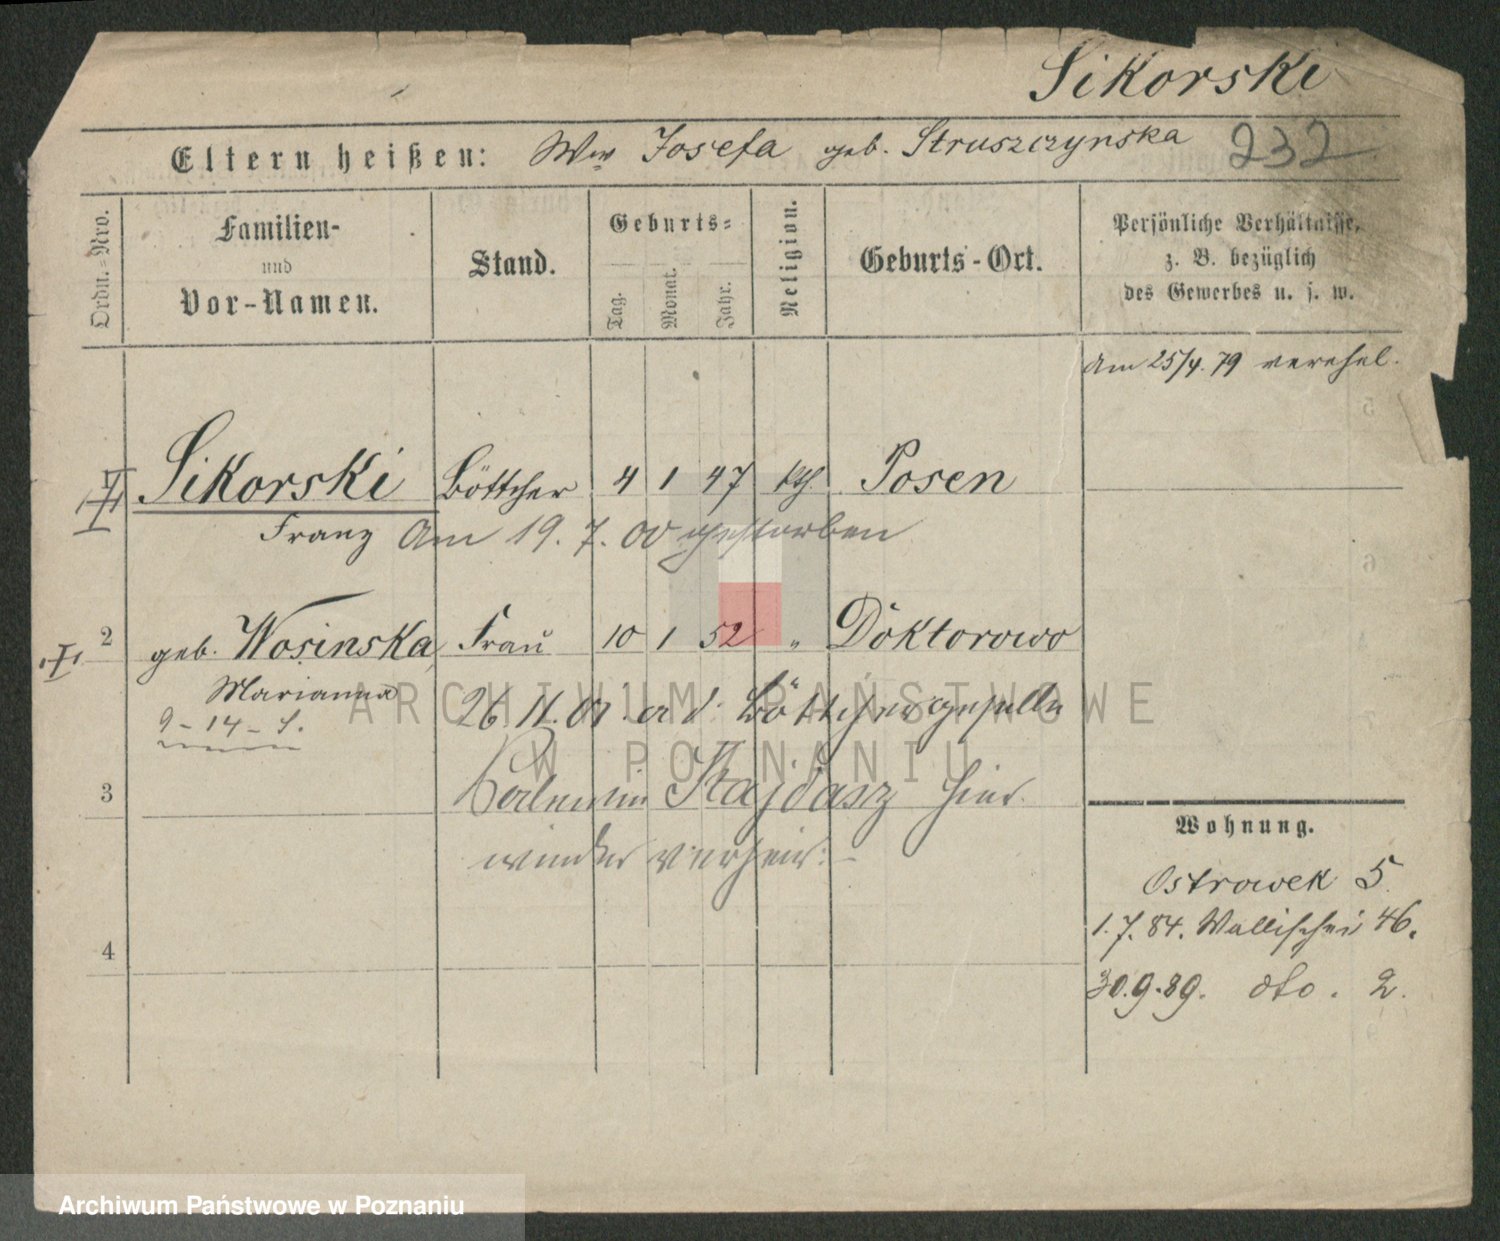 Sikorski
Eltern heißen: Ww Josefa geb. Struszczynska 232
Ordn.-Nro.
Familien- und Vor-Namen.
Stand.
Geburts-
Tag. Monat. Jahr.
Religion.
Geburts-Ort.
Persönliche Verhältnisse,
z. B. bezüglich
des Gewerbes u. s. w.
am 25/4. 79 verehel.
Sikorski Böttcher 4 1 47 kth Posen
Franz Am 19. 7. 00 gestorben
2 geb. Wosinska Frau 10 1 52 " Doktorowo
Marianna
9-14-
26. 11. 01 a d. Böttchergeselle
Kajdasz hier
wieder verheir.
3
4
Wohnung.
Ostrowek 5.
1. 7. 84. Wallischei 46.
30. 9. 89. dto. 2.
ARCHIWUM PAŃSTWOWE
W POZNANIU
Archiwum Państwowe w Poznaniu